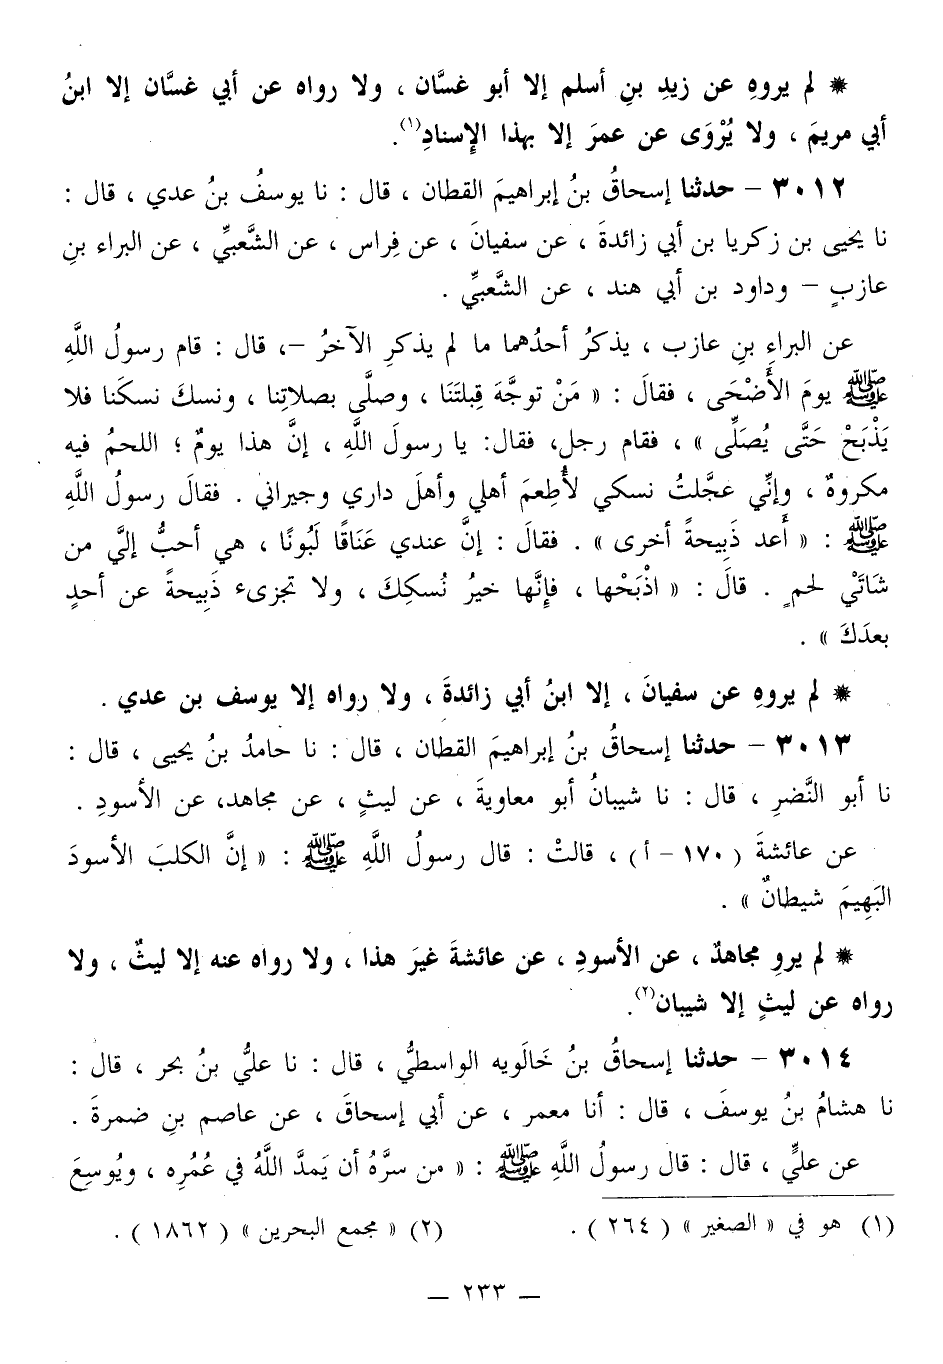 * لم يروهِ عن زيدِ بنِ أسلم إلا أبو غسَّان ، ولا رواه عن أبي غسَّان إلا ابنُ
أبي مريمَ ، ولا يُرْوَى عن عمرَ إلا بهذا الإِسنادِ(١).
٣٠١٢ – حدثنا إسحاقُ بنُ إبراهيمَ القطان ، قال : نا يوسفُ بنُ عدي ، قال :
نا يحيى بن زكريا بن أبي زائدةَ ، عن سفيانَ ، عن فِراس ، عن الشَّعبيِّ ، عن البراء بنِ
عازبٍ – وداود بن أبي هند ، عن الشَّعبيِّ .
عن البراءِ بنِ عازب ، يذكرُ أحدُهما ما لم يذكرِ الآخرُ –، قال : قام رسولُ اللَّهِ
ﷺ يومَ الأَضْحَى ، فقالَ : « مَنْ توجَّهَ قِبلتَنَا ، وصلَّى بصلاتِنا ، ونسكَ نسكَنا فلا
يَذْبَحْ حَتَّى يُصَلِّى » ، فقام رجل، فقال: يا رسولَ اللَّهِ ، إنَّ هذا يومٌ ؛ اللحمُ فيه
مكروهٌ ، وإنِّي عجَّلتُ نسكي لأُطعِمَ أهلي وأهلَ داري وجيراني . فقالَ رسولُ اللَّهِ
ﷺ : « أَعد ذَبِيحةً أخرى » . فقالَ : إنَّ عندي عَنَاقًا لَبُونًا ، هي أحبُّ إليَّ من
شَاتَيْ لحمٍ . قالَ : « اذْبَحْها ، فإنَّها خيرُ نُسكِكَ ، ولا تجزىء ذَبِيحةً عن أحدٍ
بعدَكَ » .
* لم يروهِ عن سفيانَ ، إلا ابنُ أبي زائدةَ ، ولا رواه إلا يوسف بن عدي .
٣٠١٣ – حدثنا إسحاقُ بنُ إبراهيمَ القطان ، قال : نا حامدُ بنُ يحيى ، قال :
نا أبو النَّضرِ ، قال : نا شيبانُ أبو معاويةَ ، عن ليثٍ ، عن مجاهد، عن الأسودِ .
عن عائشةَ ( ١٧٠ – أ ) ، قالتْ : قال رسولُ اللَّهِ ﷺ : « إنَّ الكلبَ الأسودَ
البَهِيمَ شيطانٌ » .
* لم يروِ مجاهدٌ ، عن الأسودِ ، عن عائشةَ غيرَ هذا ، ولا رواه عنه إلا ليثٌ ، ولا
رواه عن ليثٍ إلا شيبان(٢).
٣٠١٤ – حدثنا إسحاقُ بنُ خَالَويه الواسطيُّ ، قال : نا عليُّ بنُ بحر ، قال :
نا هشامُ بنُ يوسفَ ، قال : أنا معمر ، عن أبي إسحاقَ ، عن عاصم بنِ ضمرةَ .
عن عليٍّ ، قال : قال رسولُ اللَّهِ ﷺ : « من سرَّهُ أن يَمدَّ اللَّهُ في عُمُرِه ، ويُوسِعَ
(١) هو في « الصغير » ( ٢٦٤ ) . (٢) « مجمع البحرين » ( ١٨٦٢ ) .
– ٢٣٣ –